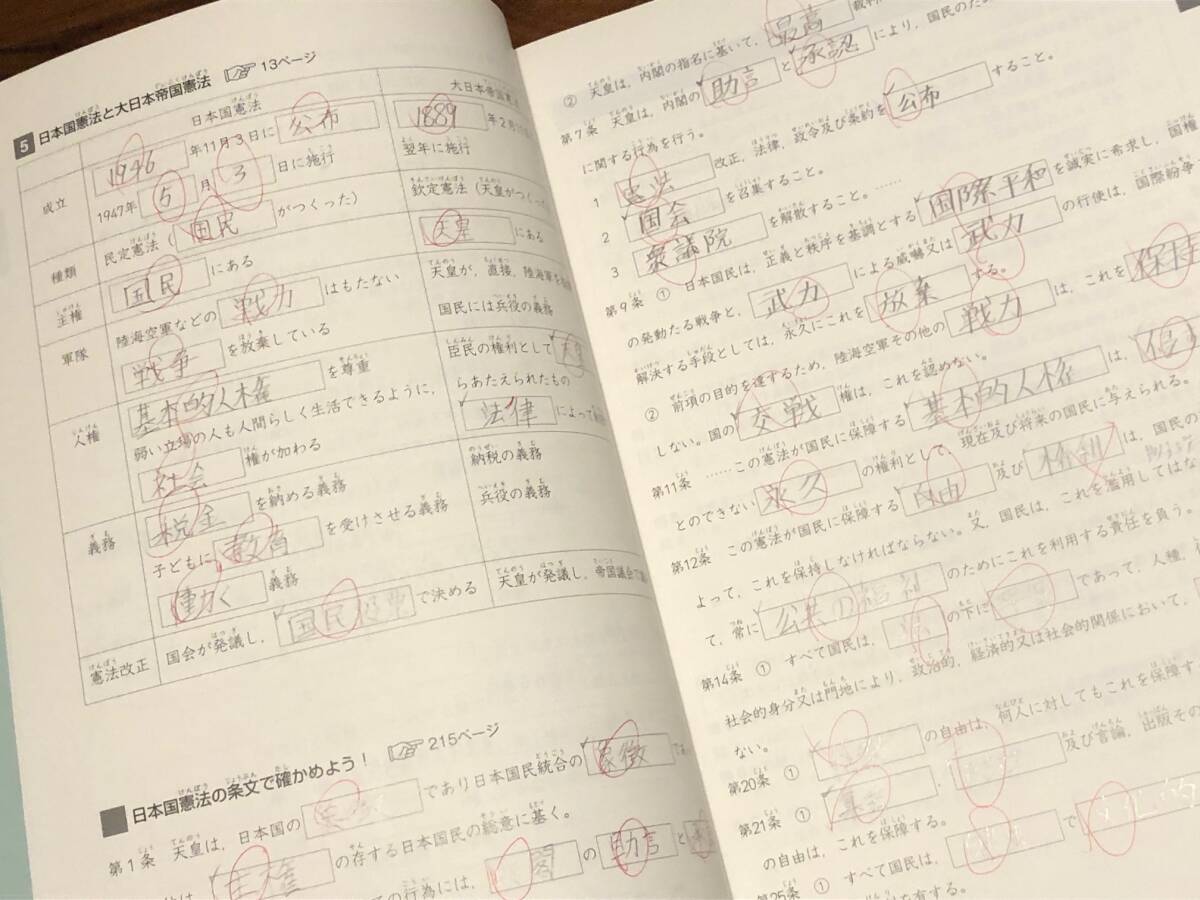 5 日本国憲法と大日本帝国憲法 13ページ
日本国憲法 大日本帝国憲法
成立 1946年11月3日に公布 1889年2月
1947年5月3日に施行 翌年に施行
種類 民定憲法(国民がつくった) 欽定憲法(天皇がつくった
主権 国民にある 天皇にある
軍隊 陸海空軍などの戦力はもたない 天皇が,直接,陸海軍を
戦争を放棄している 国民には兵役の義務
人権 基本的人権を尊重 臣民の権利として天皇
弱い立場の人も人間らしく生活できるように, らあたえられたもの
社会権が加わる 法律によって
義務 税金を納める義務 納税の義務
子どもに教育を受けさせる義務 兵役の義務
働く義務
憲法改正 国会が発議し,国民投票で決める 天皇が発議し,帝国議会で
日本国憲法の条文で確かめよう! 215ページ
第1条 天皇は,日本国の象徴であり日本国民統合の象徴であ
主権の存する日本国民の総意に基く。
の行為には,内閣の助言と
② 天皇は,内閣の指名に基いて,最高裁判
第7条 天皇は,内閣の助言と承認により,国民のため
に関する行為を行う。
1 憲法改正,法律,政令及び条約を公布すること。
2 国会を召集すること。
3 衆議院を解散すること。……
第9条 ① 日本国民は,正義と秩序を基調とする国際平和を誠実に希求し,国権
の発動たる戦争と,武力による威嚇又は武力の行使は,国際紛争
解決する手段としては,永久にこれを放棄する。
② 前項の目的を達するため,陸海空軍その他の戦力は,これを保持
しない。国の交戦権は,これを認めない。
第11条 ……この憲法が国民に保障する基本的人権は,侵す
とのできない永久の権利として,現在及び将来の国民に与えられる。
第12条 この憲法が国民に保障する自由及び権利は,国民の
よって,これを保持しなければならない。又,国民は,これを濫用してはな
て,常に公共の福祉のためにこれを利用する責任を負う。
第14条 ① すべて国民は,法の下に平等であって,人種,
社会的身分又は門地により,政治的,経済的又は社会的関係において,
ない。
第20条 ① の自由は,何人に対してもこれを保障す
第21条 ① 集会 及び言論,出版その
の自由は,これを保障する。
第25条 ① すべて国民は, で文化的
を有する。